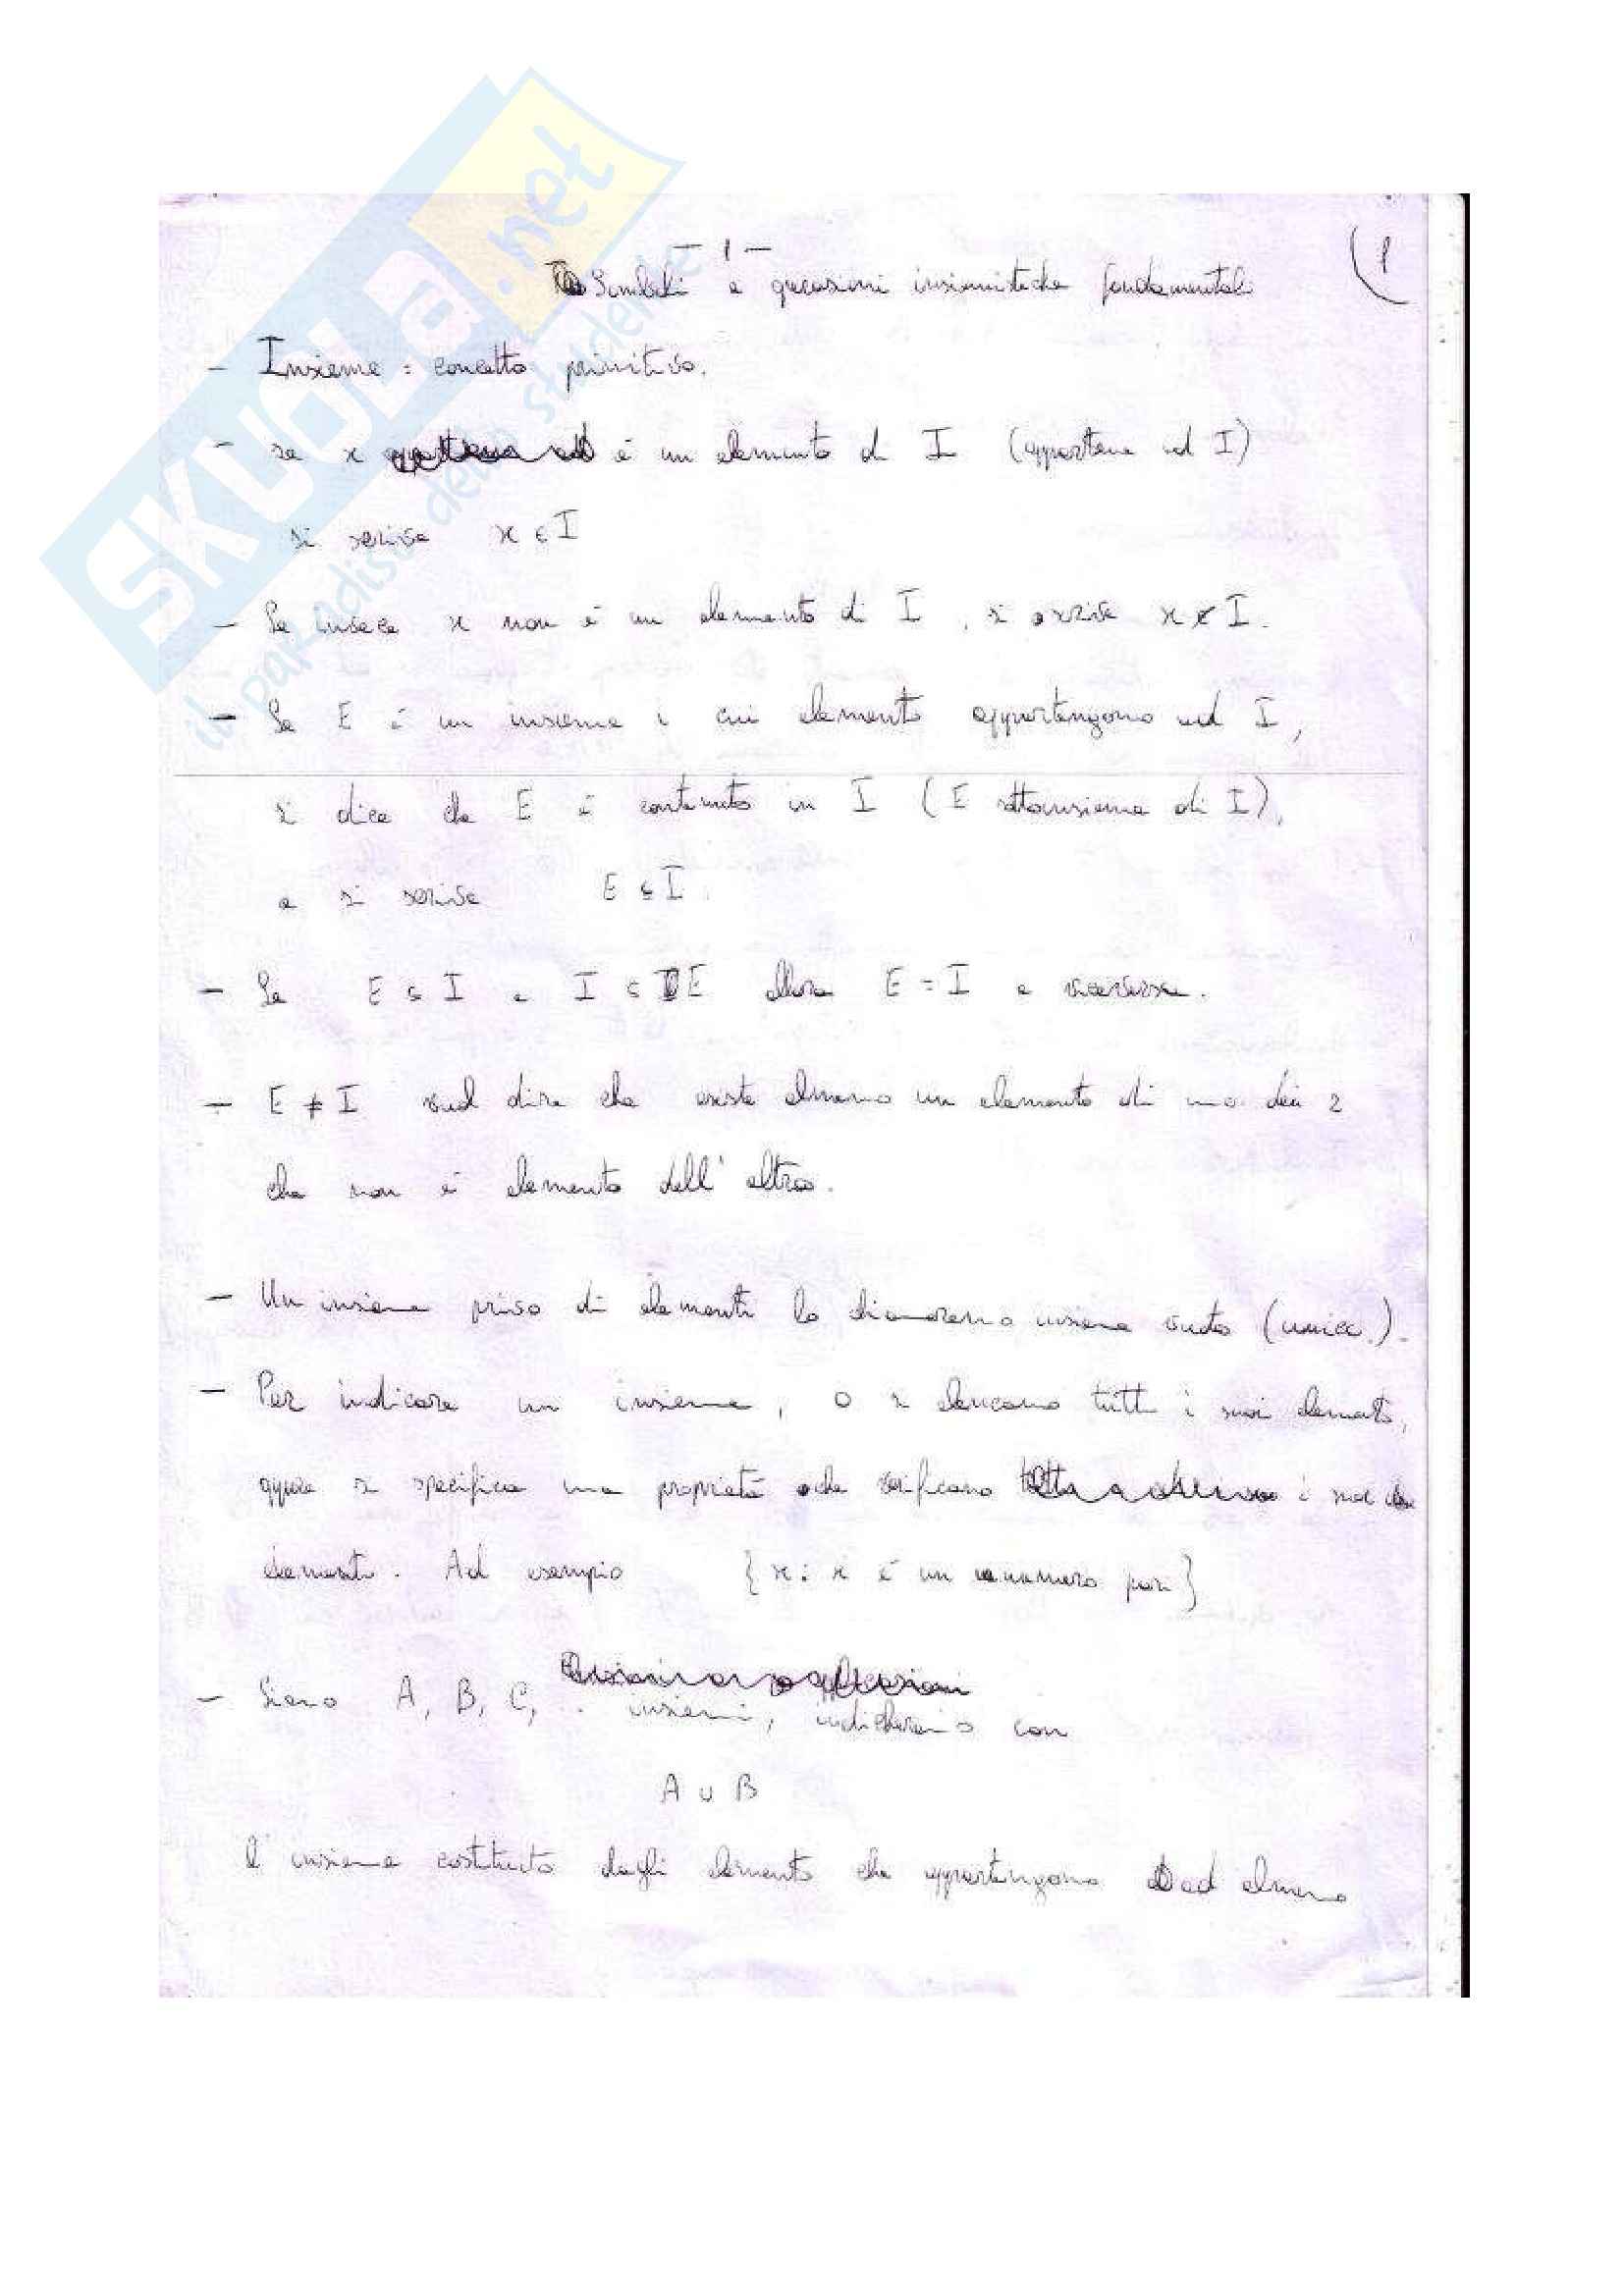 SKUOLA.net
il paradiso dello studente
- 1 -
(1
Simboli e operazioni insiemistiche fondamentali
- Insieme : concetto primitivo.
- se x è un elemento di I (appartiene ad I)
si scrive x ∈ I
- Se invece x non è un elemento di I , si scrive x ∉ I.
- Se E è un insieme i cui elementi appartengono ad I,
si dice che E è contenuto in I (E sottoinsieme di I),
e si scrive E ⊆ I.
- Se E ⊆ I e I ⊆ E allora E = I e viceversa.
- E ≠ I vuol dire che esiste almeno un elemento di uno dei 2
che non è elemento dell'altro.
- Un insieme privo di elementi lo chiameremo insieme vuoto (unico).
- Per indicare un insieme, o si elencano tutti i suoi elementi,
oppure si specifica una proprietà che verificano i suoi
elementi. Ad esempio {x : x è un numero pari}
- Siano A, B, C, .. insiemi, indicheremo con
A ∪ B
l'insieme costituito dagli elementi che appartengono ad almeno